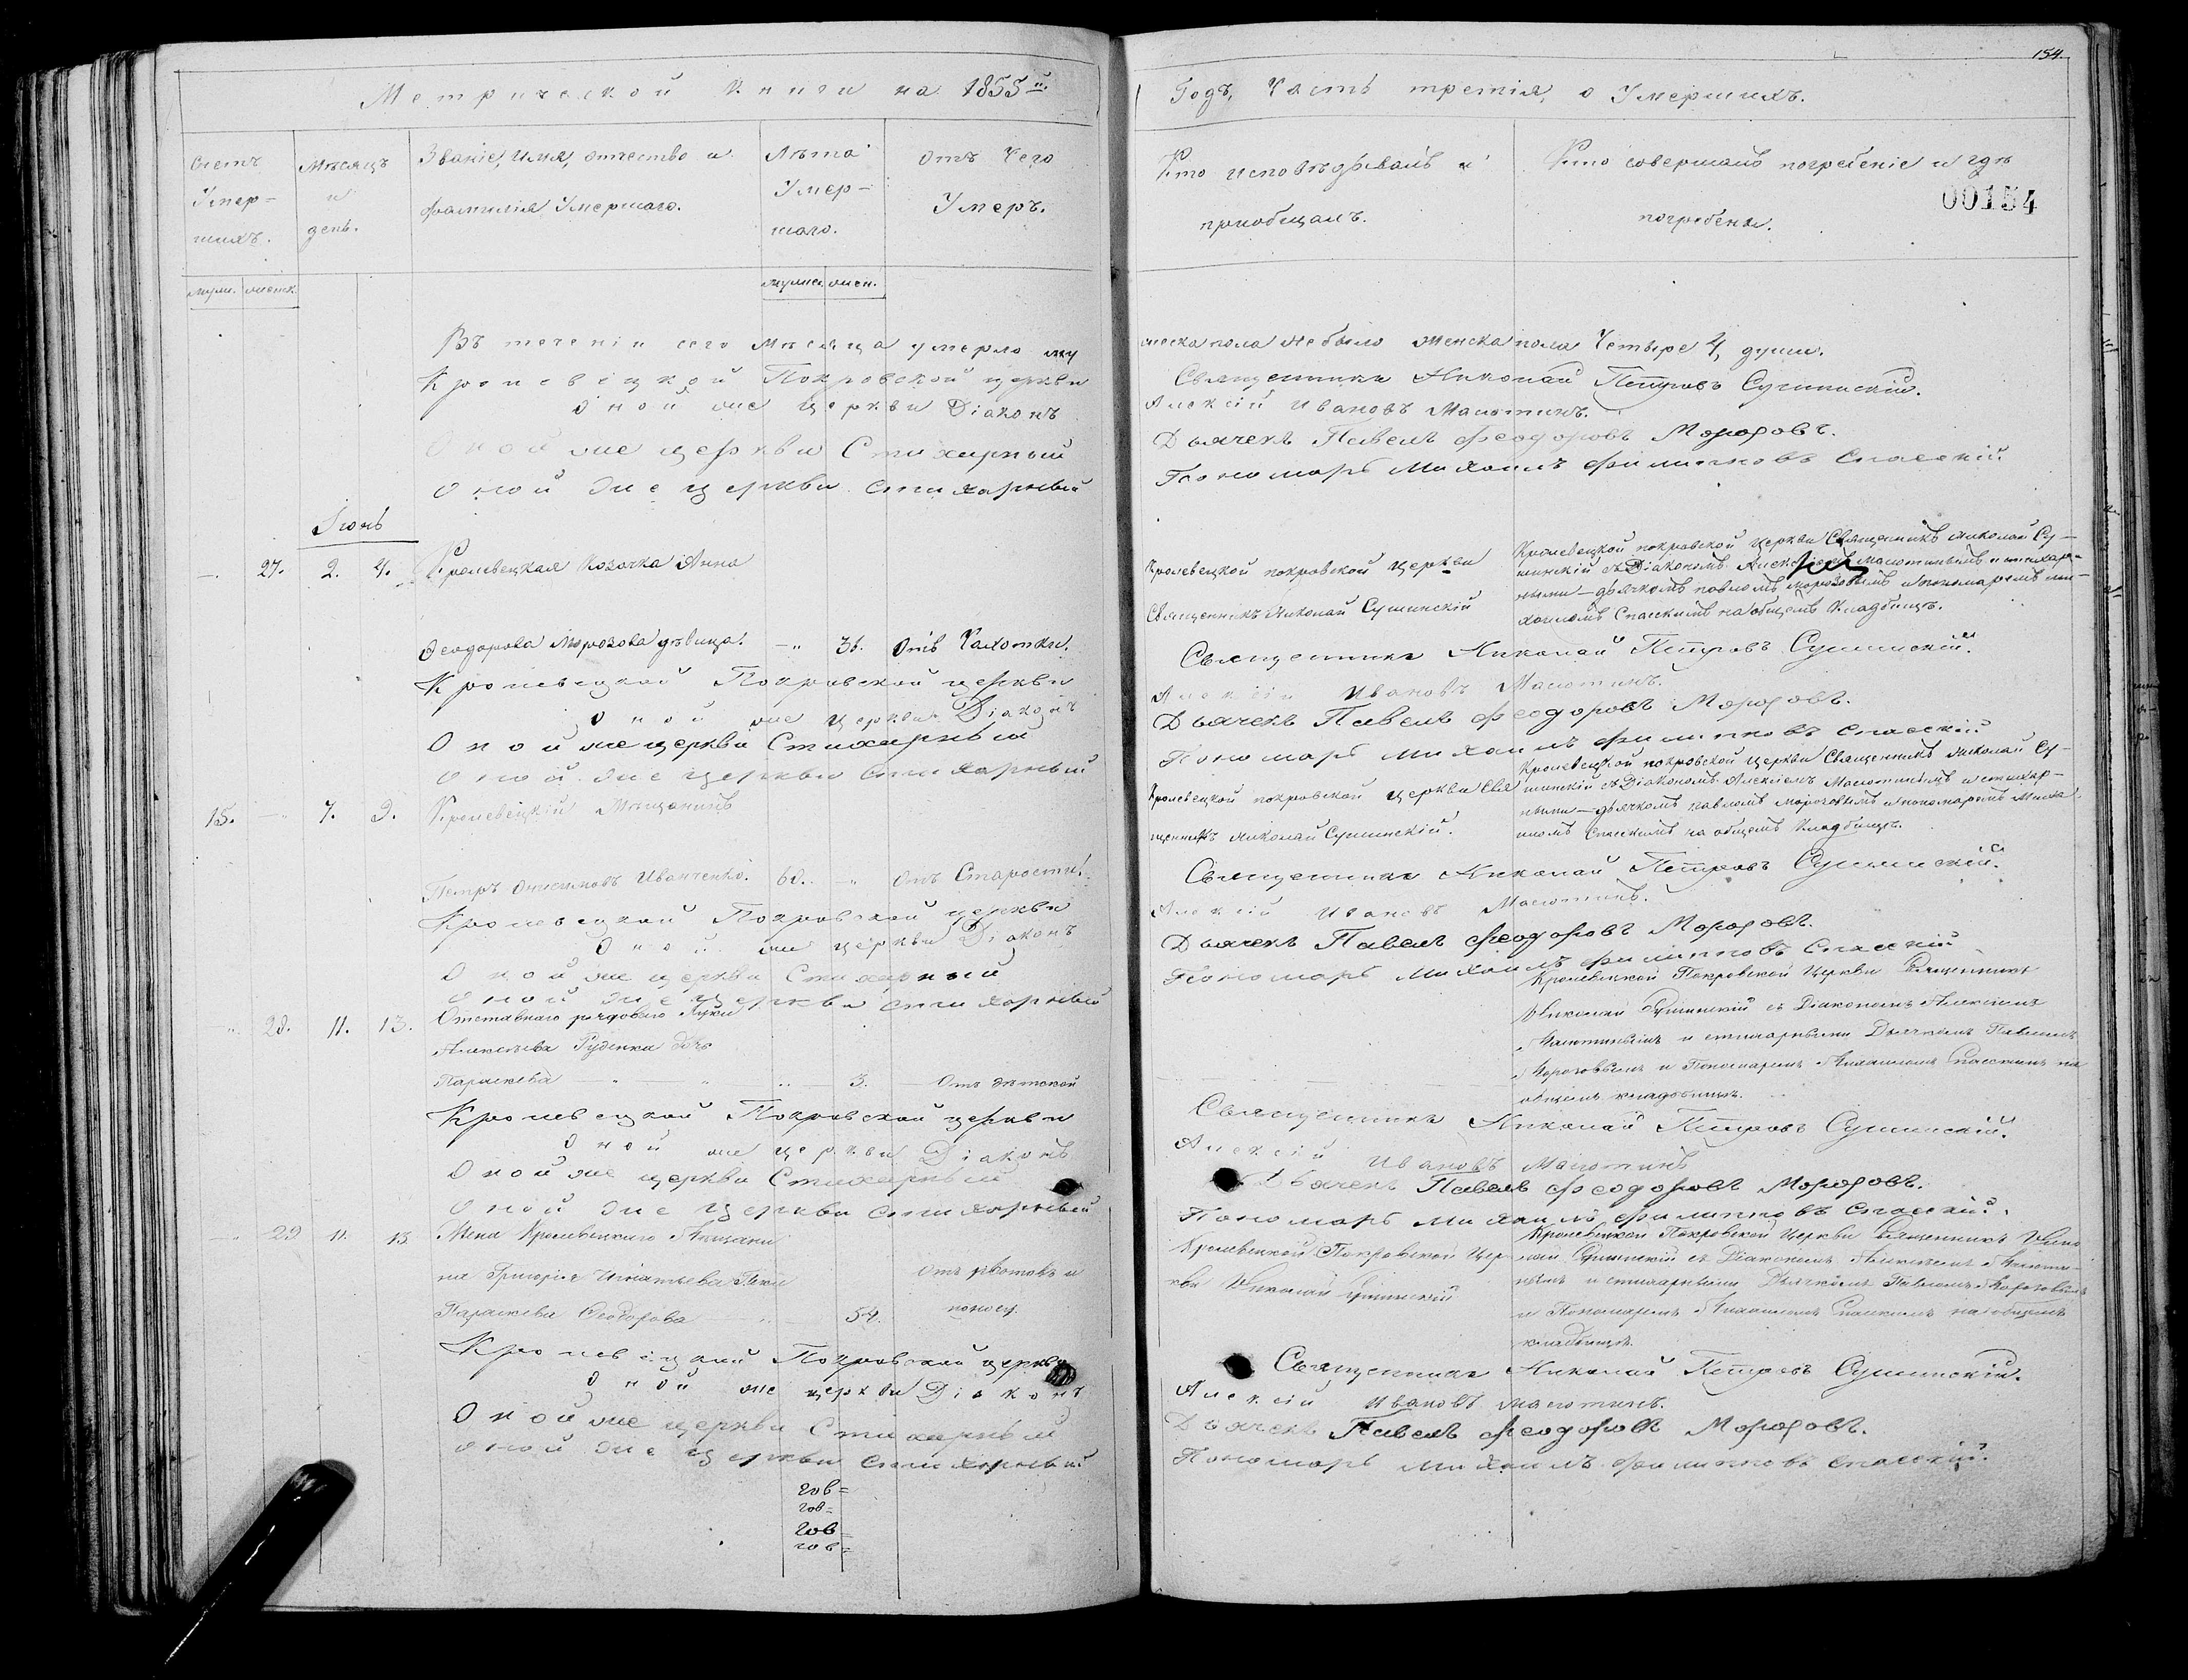 154.
Метрической Книги на 1855й.
Годъ, Часть третія, о Умершихъ.
Счетъ
Умер-
шихъ.
Мѣсяцъ
и
день.
Званіе, имя, отчество и
фамилія Умершаго.
Лѣта
Умер-
шаго.
Отъ Чего
Умеръ.
Кто исповѣдывалъ и
пріобщалъ.
Кто совершалъ погребеніе и гдѣ
погребены.
00154
муж. женск.
мужес. жен.
Въ теченіи сего мѣсяца умерло му
жеска пола небыло женска пола Четыре 4, души.
Кролевецкой Покровской церкви
Священникъ Николай Петровъ Сушинскій.
Оной же церкви Діаконъ
Алексій Ивановъ Малютинъ.
Оной же церкви Стихарный
Дьячекъ Павелъ Феодоровъ Морозовъ.
Оной же церкви стихарный
Пономарь Михаилъ Филиповъ Спасскій.
Іюнь
27. 2. 4. Кролевецкая Козачка Анна
Феодорова Морозова дѣвица. 36. Отъ Чахотки.
Кролевецкой покровской церкви
Священникъ Николай Сушинскій
Кролевецкой покровской церкви Священникъ Николай Су-
шинскій съ Діакономъ Малютинымъ и стихар-
ными - дьячкомъ павломъ морозовымъ и пономаремъ ми-
хаиломъ Спасскимъ на общемъ Кладбищѣ.
Кролевецкой Покровской церкви
Священникъ Николай Петровъ Сушинскій.
Оной же церкви Діаконъ
Алексій Ивановъ Малютинъ.
Оной же церкви Стихарный
Дьячекъ Павелъ Феодоровъ Морозовъ.
Оной же церкви стихарный
Пономарь Михаилъ Филиповъ Спасскій
15. 7. 9. Кролевецкій Мѣщанинъ
Петръ Онисимовъ Иванченко. 60. Отъ Старости.
Кролевецкой покровской церкви Свя
щенникъ Николай Сушинскій.
Кролевецкой покровской церкви Священникъ Николай Су-
шинскій съ Діакономъ Алексіемъ Малютинымъ и стихар-
ными - дьячкомъ павломъ морозовымъ и пономаремъ Миха
иломъ Спасскимъ на общемъ Кладбищѣ.
Кролевецкой Покровской церкви
Священникъ Николай Петровъ Сушинскій.
Оной же церкви Діаконъ
Алексій Ивановъ Малютинъ.
Оной же церкви Стихарный
Дьячекъ Павелъ Феодоровъ Морозовъ.
Оной же церкви стихарный
Пономарь Михаилъ Филиповъ Спасскій
28. 11. 13. Отставнаго рядового Луки
Алексѣева Руденка дочь
Параскева 3. Отъ дѣтской
Кролевецкой Покровской Церкви Священникъ
Николай Сушинскій съ Діакономъ Алексіемъ
Малютинымъ и стихарными Дьячкомъ Павломъ
Морозовымъ и Пономаремъ Михаиломъ Спасскимъ на
общемъ кладбищѣ.
Кролевецкой Покровской церкви
Священникъ Николай Петровъ Сушинскій.
Оной же церкви Діаконъ
Алексій Ивановъ Малютинъ
Оной же церкви Стихарный
Дьячекъ Павелъ Феодоровъ Морозовъ.
Оной же церкви стихарный
Пономарь Михаилъ Филиповъ Спасскій.
29 11. 13 Жена Кролевецкаго Мѣщани
на Григорія Игнатьева
Параскева Феодорова 54. Отъ рвотовъ и
поносу.
Кролевецкой Покровской Цер-
кви Николай Сушинскій
Кролевецкой Покровской Церкви Священникъ Нико
лай Сушинскій съ Діакономъ Алексіемъ Малюти-
нымъ и стихарными Дьячкомъ Павломъ Морозовымъ
и Пономаремъ Михаиломъ Спасскимъ на общемъ
кладбищѣ.
Кролевецкой Покровской церкви
Священникъ Николай Петровъ Сушинскій.
Оной же церкви Діаконъ
Алексій Ивановъ Малютинъ.
Оной же церкви Стихарный
Дьячекъ Павелъ Феодоровъ Морозовъ.
Оной же церкви стихарный
Пономарь Михаилъ Филиповъ Спасскій.
гов=
гов=
гов=
гов=